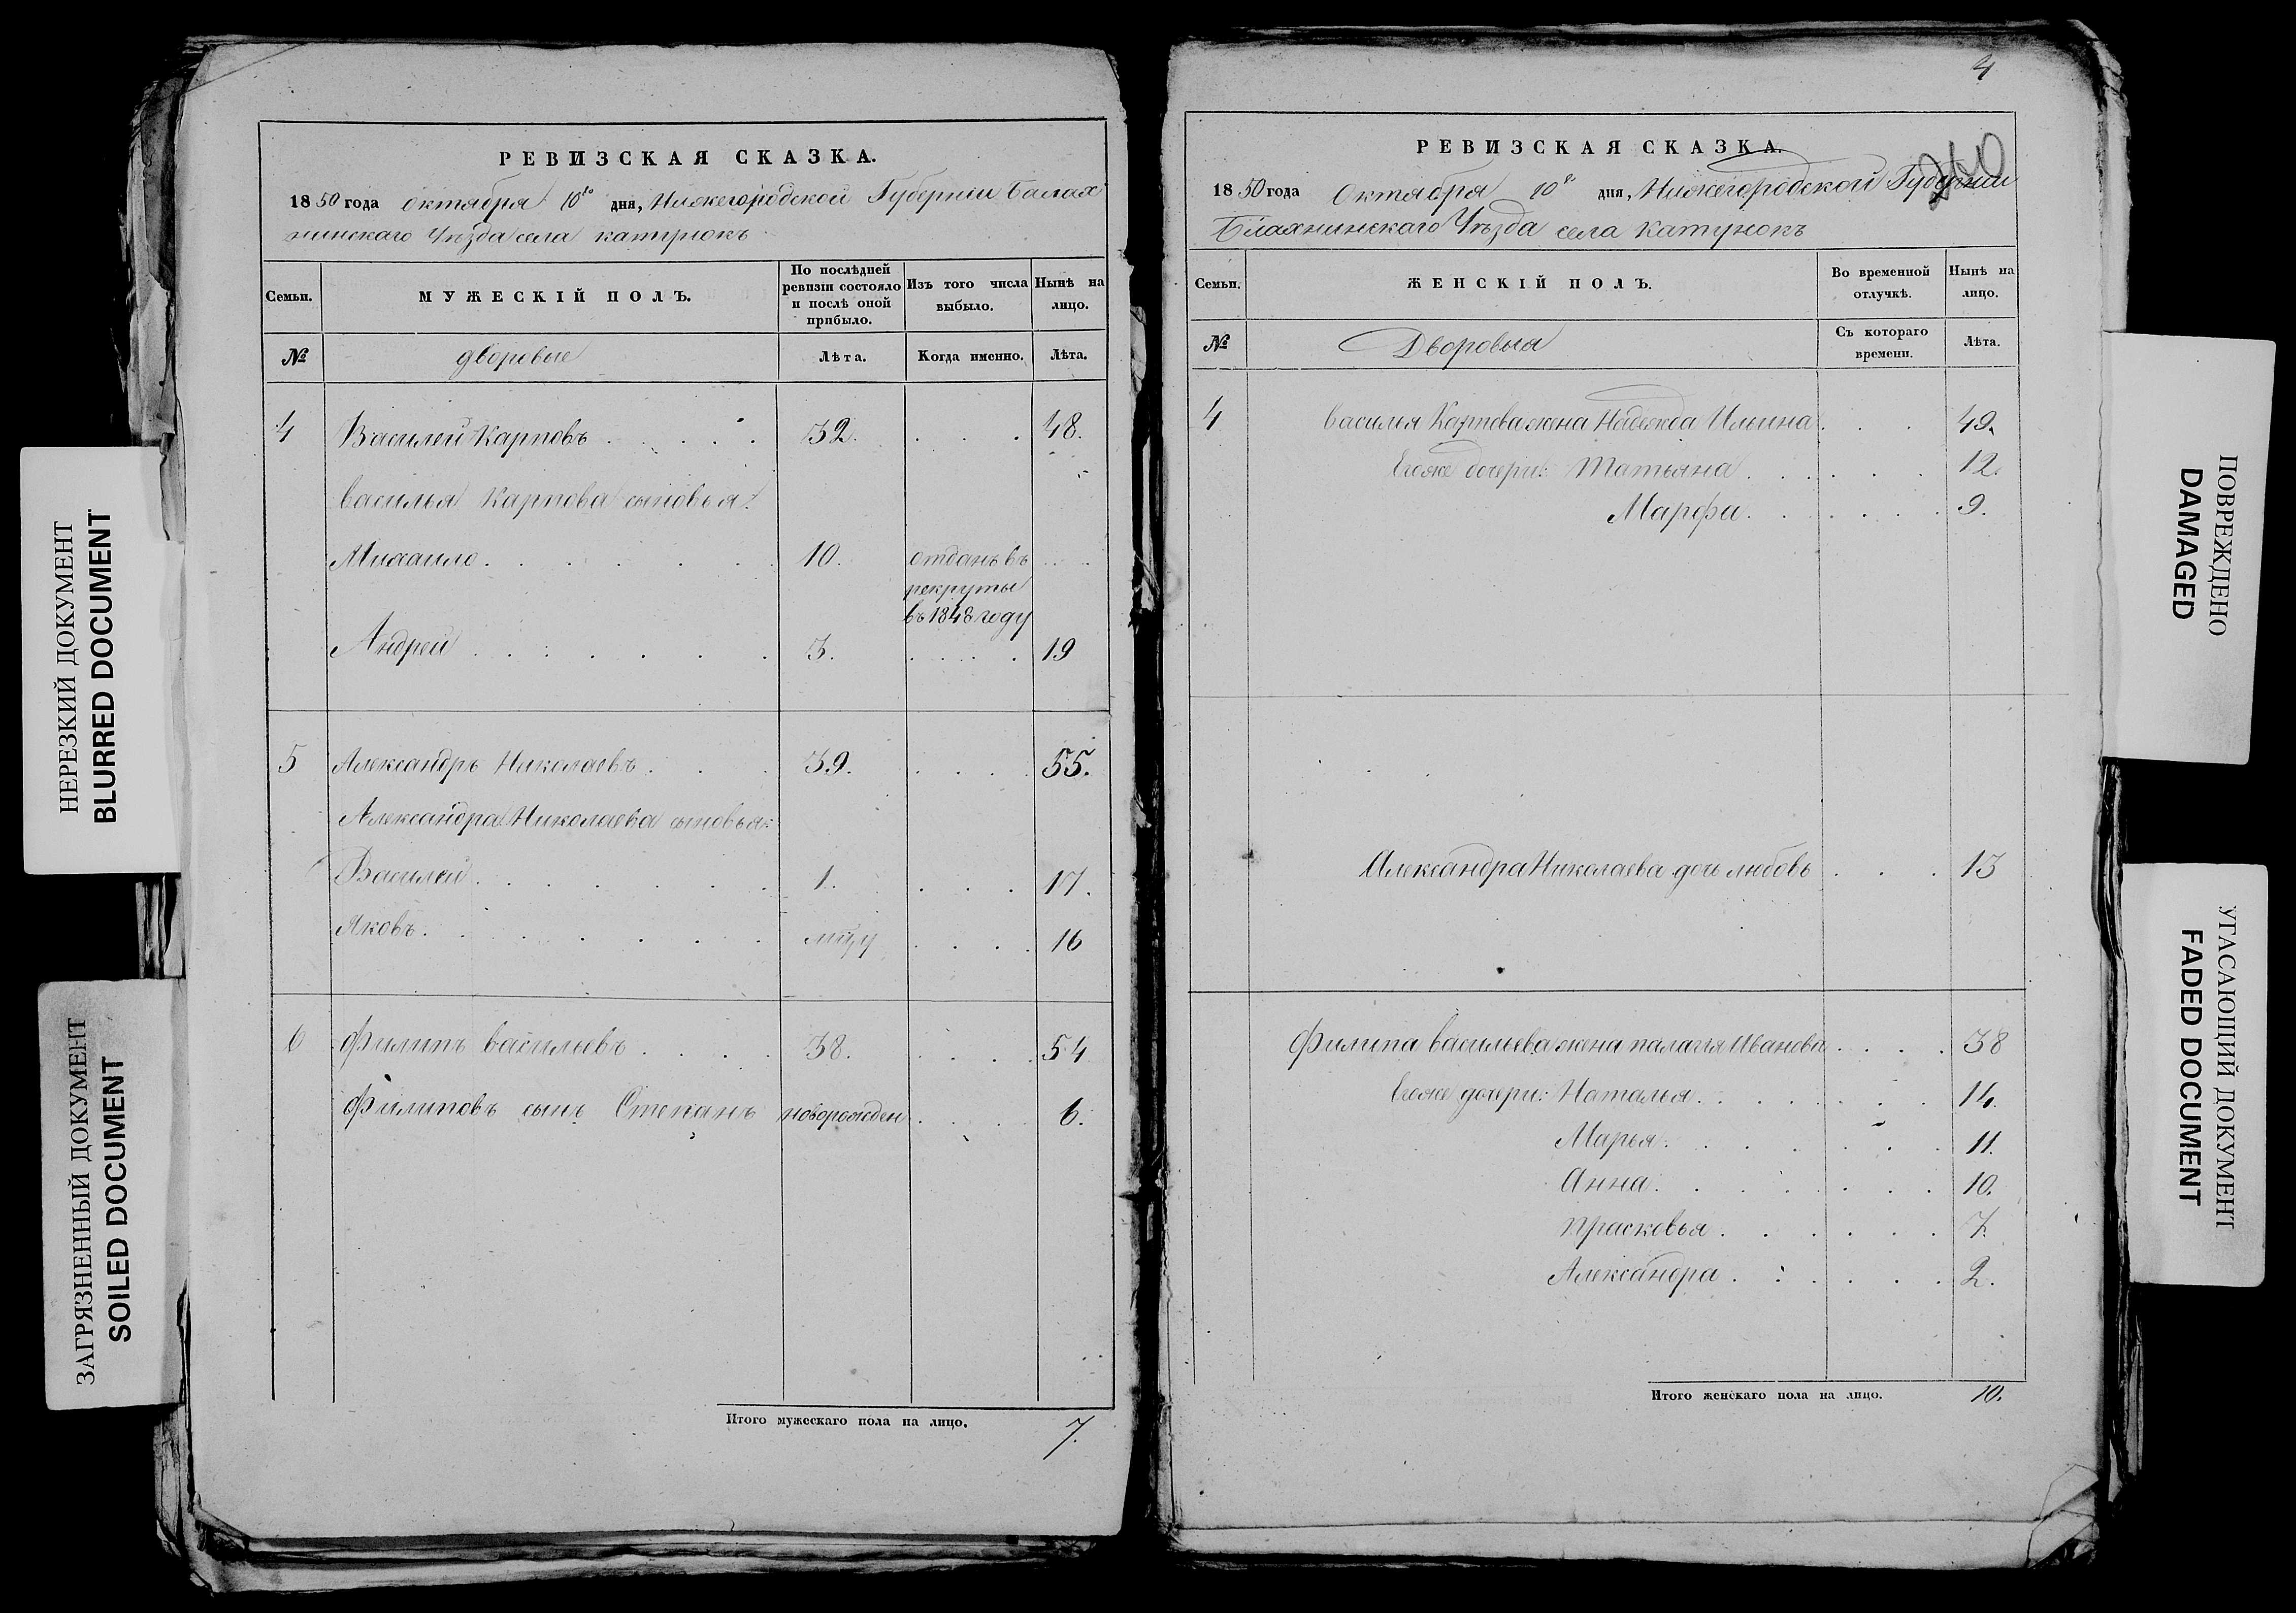 НЕРЕЗКИЙ ДОКУМЕНТ
BLURRED DOCUMENT
ЗАГРЯЗНЕННЫЙ ДОКУМЕНТ
SOILED DOCUMENT
РЕВИЗСКАЯ СКАЗКА.
1850 года октября 10го дня, Нижегородской Губернии Балах
нинскаго Уѣзда села катунокъ
Семьи.
МУЖЕСКІЙ ПОЛЪ.
По послѣдней ревизіи состояло и послѣ оной прибыло.
Изъ того числа выбыло.
Нынѣ на лицо.
№ дворовые Лѣта. Когда именно. Лѣта.
4 Василей Карповъ 32. 48.
василья Карпова сыновья:
Михаило 10. отданъ въ
рекруты
въ 1848 году
Андрей 3. 19
5 Александръ Николаевъ 39. 55.
Александра Николаева сыновья:
Василей 1. 17.
Яковъ 16
6 Филипъ васильевъ 38. 54
Филиповъ сынъ Степанъ новорожден 6.
Итого мужескаго пола на лицо. 7.
4
240
РЕВИЗСКАЯ СКАЗКА.
1850 года Октября 10 дня, Нижегородской Губернии
Блахнинскаго Уѣзда села Катунокъ
Семьи.
ЖЕНСКІЙ ПОЛЪ.
Во временной отлучкѣ.
Нынѣ на лицо.
№ Дворовыя Съ котораго времени. Лѣта.
4 василья Карпова жена Надежда Ильина 49.
Егоже дочери: Татьяна 12.
Марфа 9.
Александра Николаева дочь любовь 13
Филипа васильева жена палагея Иванова 38
Егоже дочери: Наталья 14.
Марья 11.
Анна 10.
прасковья 7.
Александра 2.
Итого женскаго пола на лицо. 10.
ПОВРЕЖДЕНО
DAMAGED
УГАСАЮЩИЙ ДОКУМЕНТ
FADED DOCUMENT